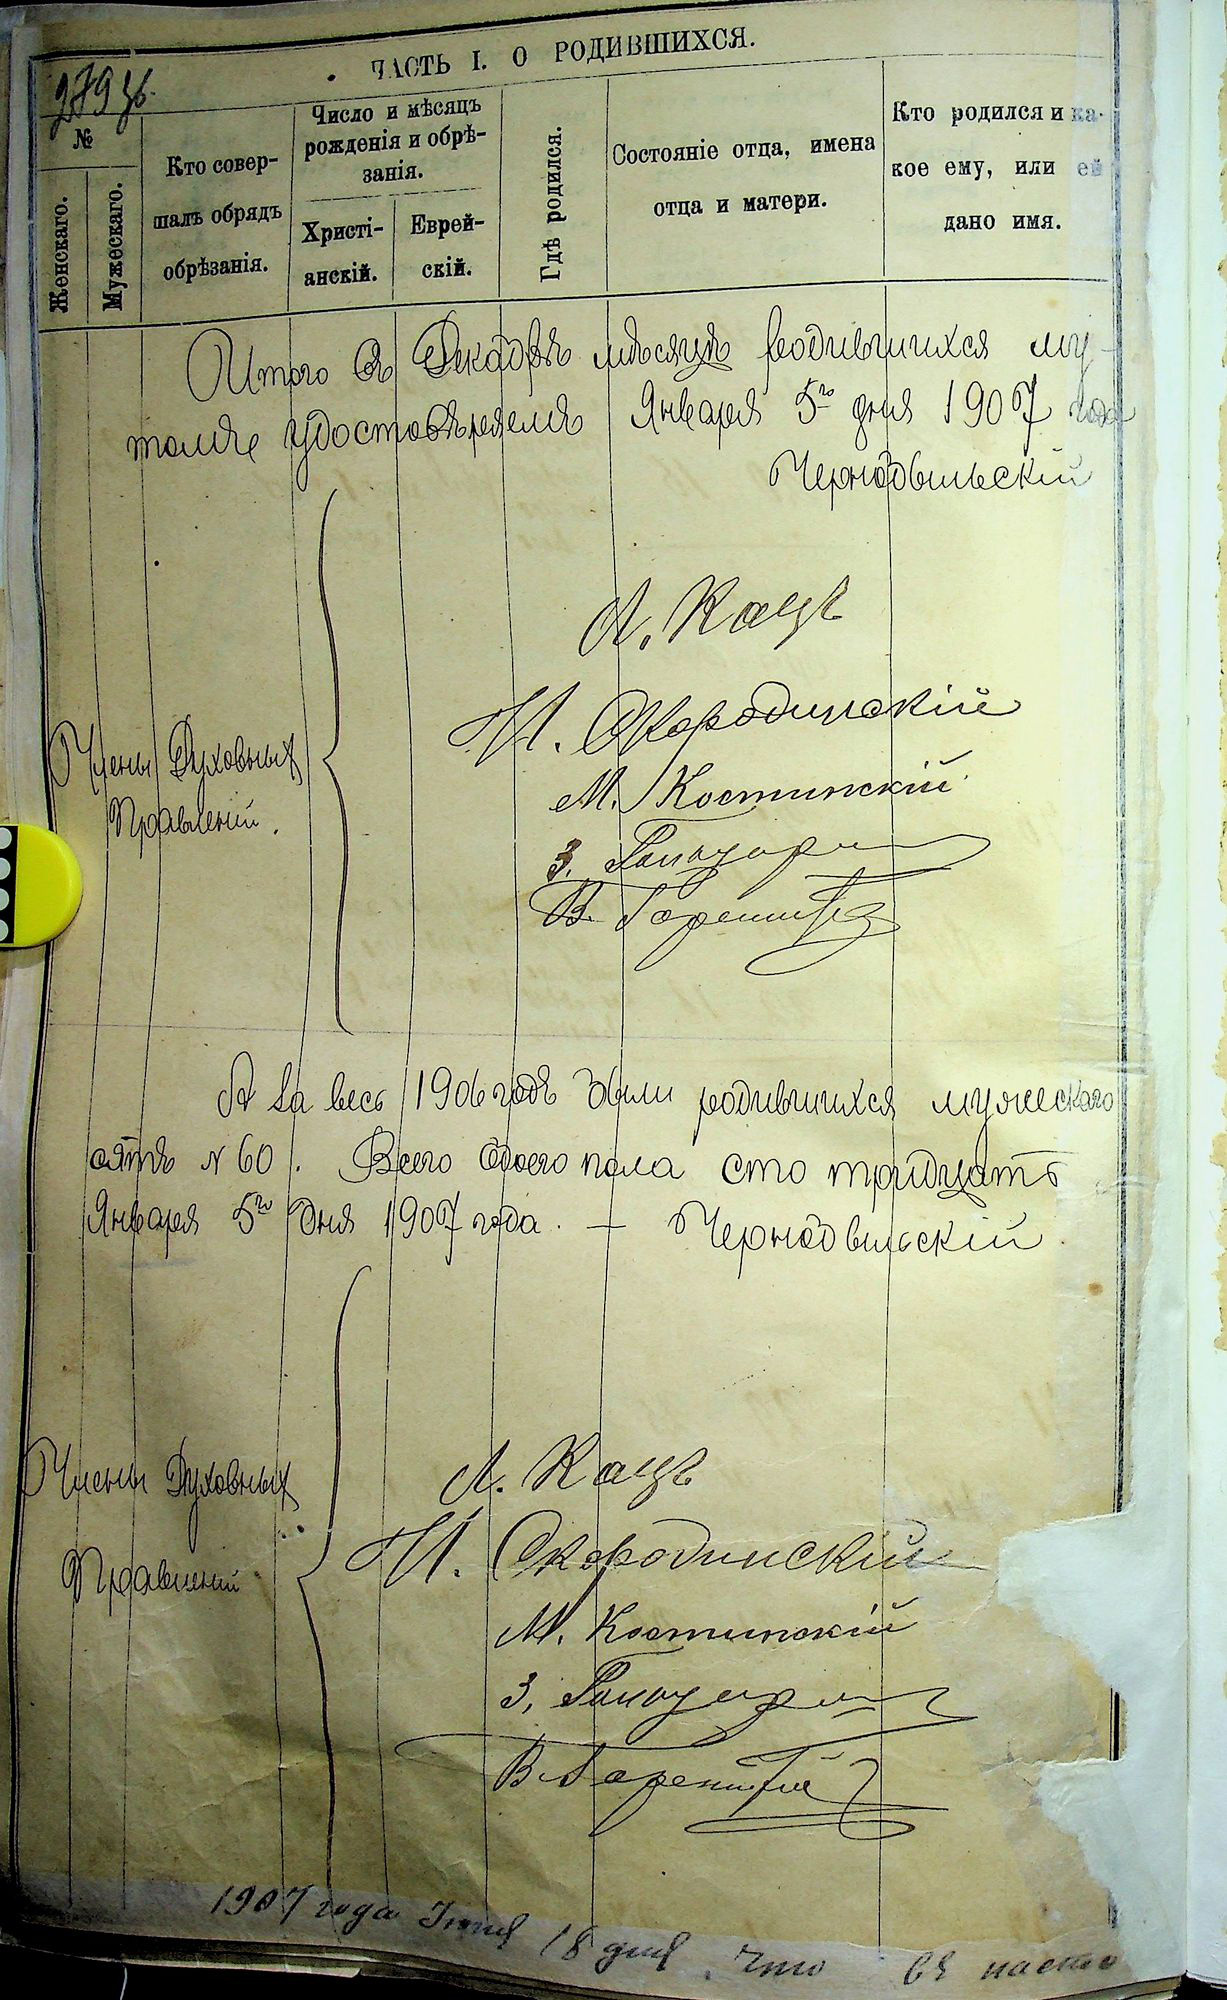 ЧАСТЬ I. О РОДИВШИХСЯ.
279 об.
№
Женскаго.
Мужескаго.
Кто совер-
шалъ обрядъ
обрѣзанія.
Число и мѣсяцъ
рожденія и обрѣ-
занія.
Христі-
анскій.
Еврей-
скій.
Гдѣ родился.
Состояніе отца, имена
отца и матери.
Кто родился и ка-
кое ему, или ей
дано имя.
Итого въ Декабрѣ мѣсяцѣ родившихся му-
томъ удостовѣряемъ Января 5го дня 1907 года
Чернобыльскій
Члены Духовныхъ
Правленій.
Л. Кацъ
И. Скородинскій
М. Костинскій
З.
В.
А за весь 1906 годъ были родившихся мужескаго
сятъ № 60. Всего обоего пола сто тридцать
Января 5го дня 1907 года. — Чернобыльскій
Члены Духовныхъ
Правленій
Л. Кацъ
И. Скородинскій
М. Костинскій
З.
В.
1907 года 18 дня Что въ насто